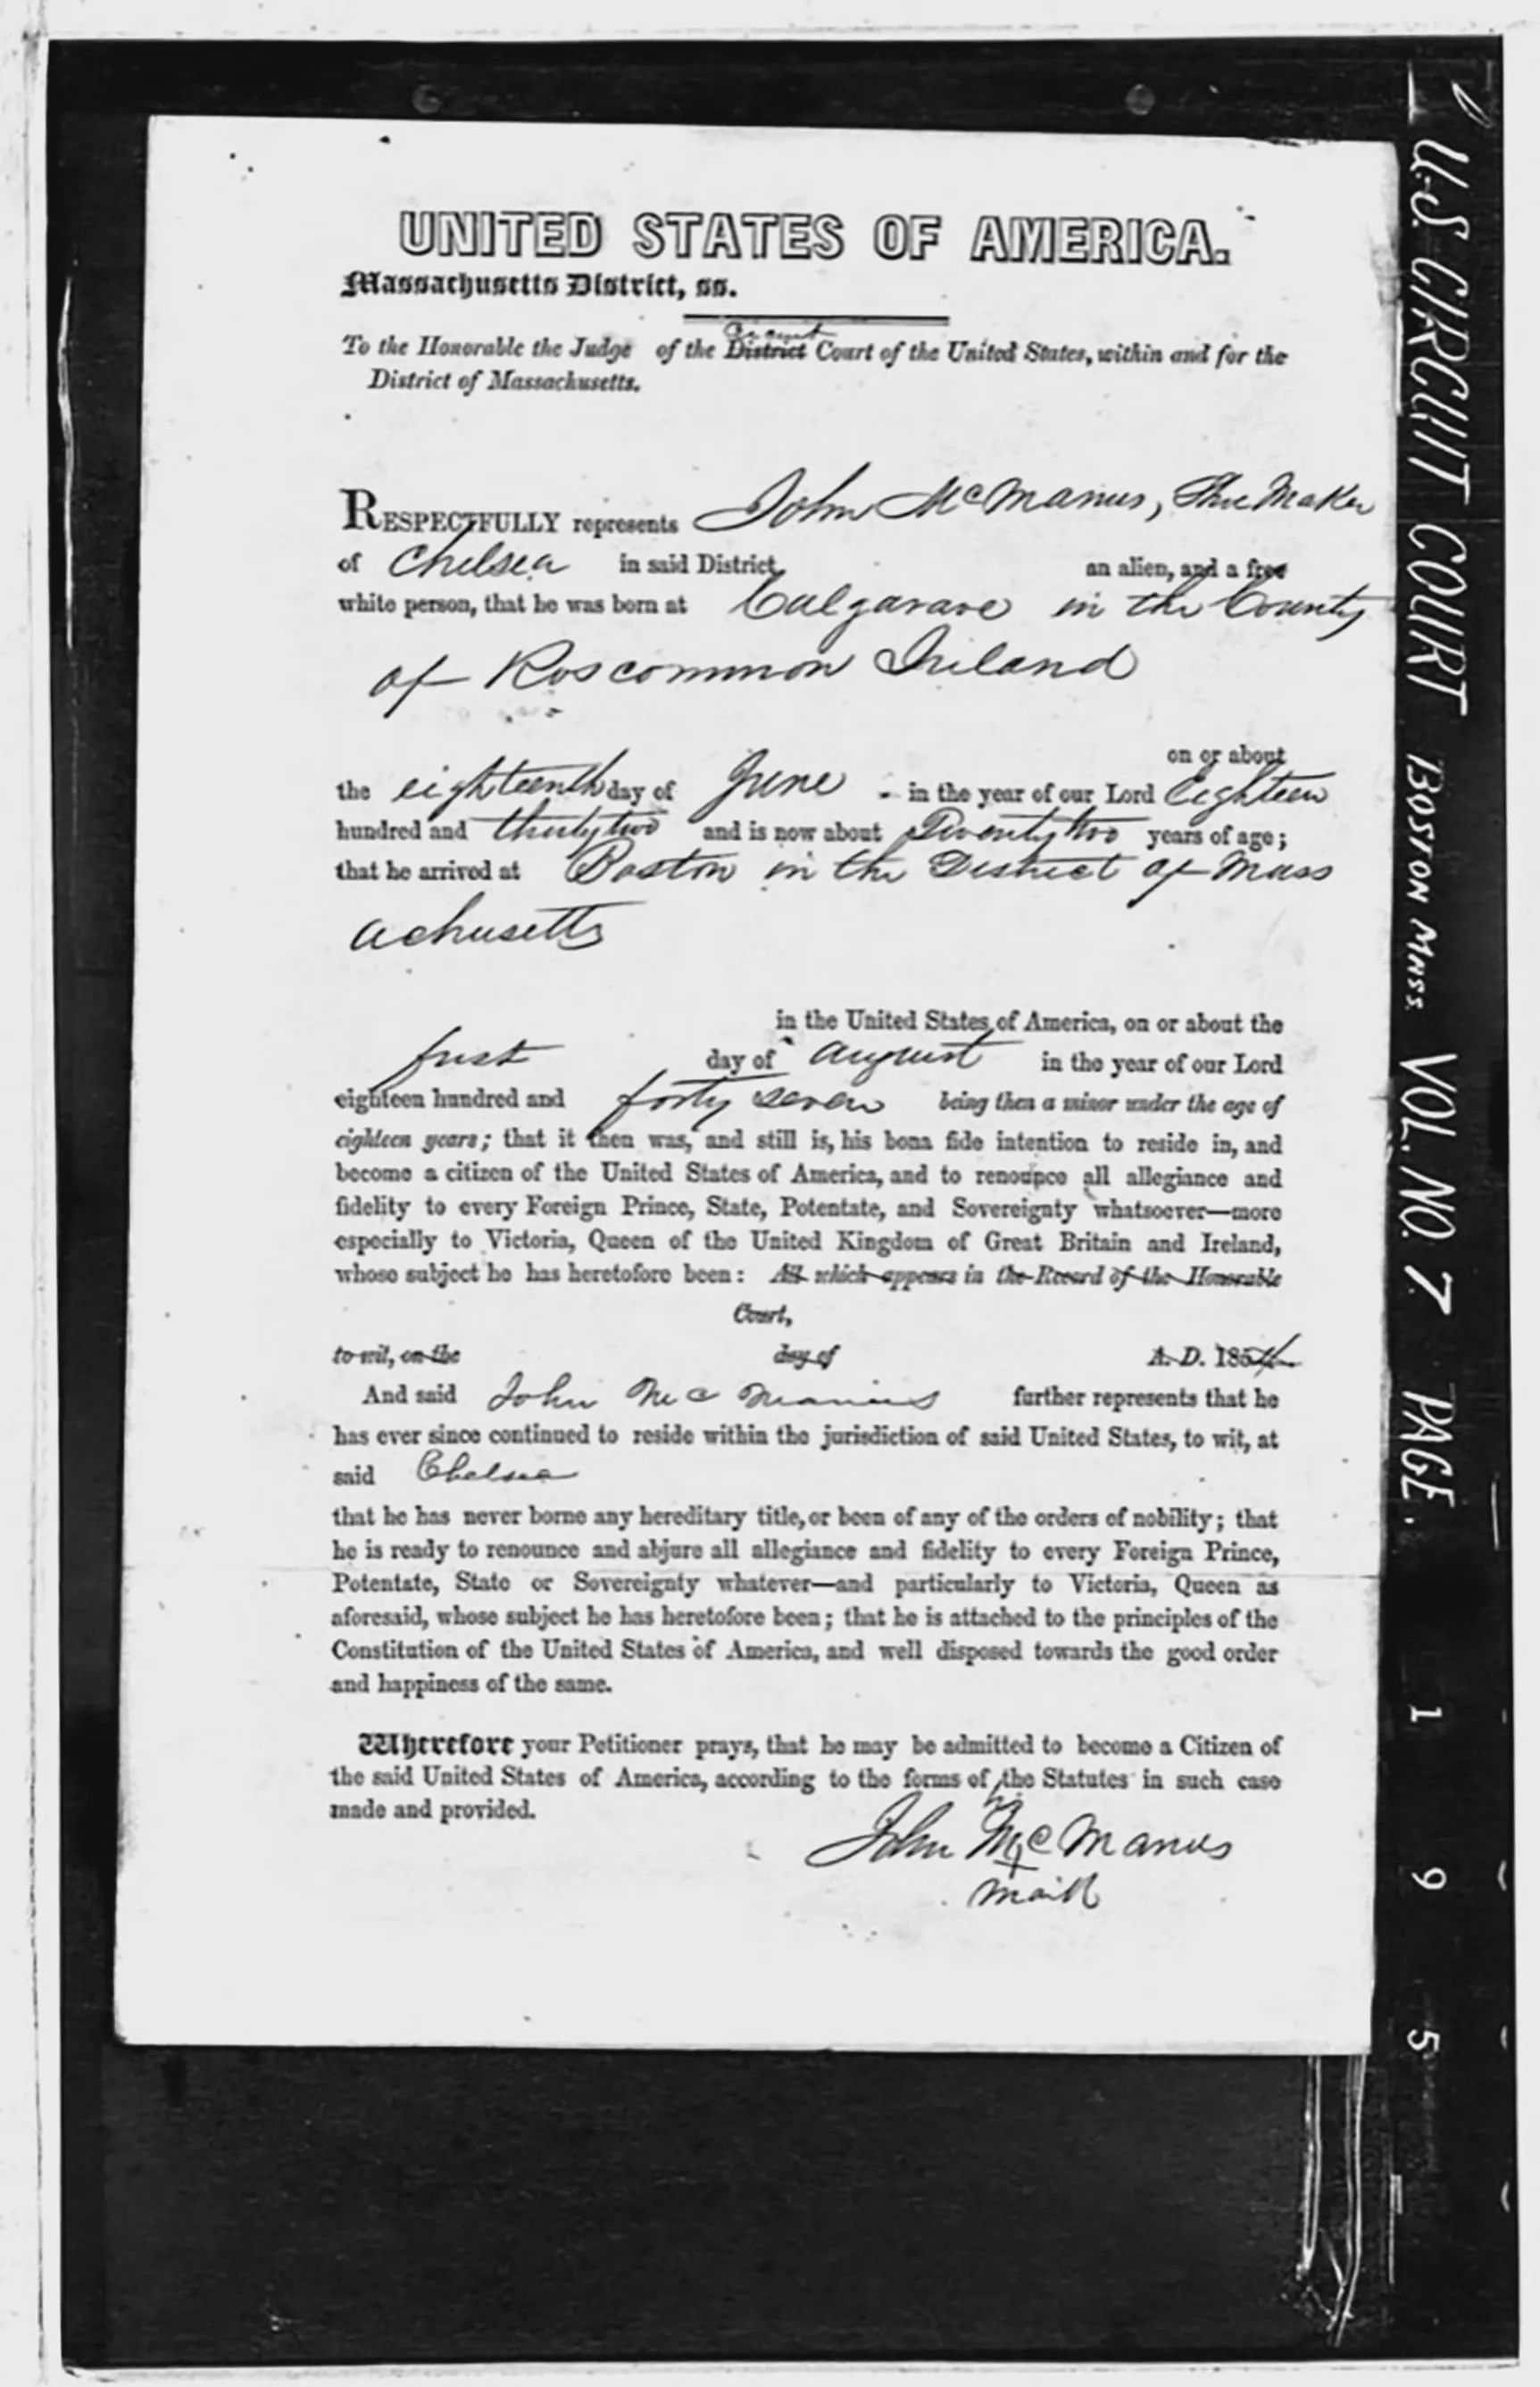 UNITED STATES OF AMERICA.
Massachusetts District, ss.
Circuit
To the Honorable the Judge of the District Court of the United States, within and for the
District of Massachusetts.
RESPECTFULLY represents John McManus, Shoe Maker
of Chelsea in said District, an alien, and a free
white person, that he was born at Culgarave in the County
of Roscommon Ireland
on or about
the eighteenth day of June in the year of our Lord Eighteen
hundred and thirty two and is now about Twenty two years of age;
that he arrived at Boston in the District of Mass
achusetts
in the United States of America, on or about the
first day of August in the year of our Lord
eighteen hundred and forty seven being then a minor under the age of
eighteen years; that it then was, and still is, his bona fide intention to reside in, and
become a citizen of the United States of America, and to renounce all allegiance and
fidelity to every Foreign Prince, State, Potentate, and Sovereignty whatsoever—more
especially to Victoria, Queen of the United Kingdom of Great Britain and Ireland,
whose subject he has heretofore been: All which appears in the Record of the Honorable
Court,
to wit, on the day of A. D. 1854
And said John McManus further represents that he
has ever since continued to reside within the jurisdiction of said United States, to wit, at
said Chelsea
that he has never borne any hereditary title, or been of any of the orders of nobility; that
he is ready to renounce and abjure all allegiance and fidelity to every Foreign Prince,
Potentate, State or Sovereignty whatever—and particularly to Victoria, Queen as
aforesaid, whose subject he has heretofore been; that he is attached to the principles of the
Constitution of the United States of America, and well disposed towards the good order
and happiness of the same.
Wherefore your Petitioner prays, that he may be admitted to become a Citizen of
the said United States of America, according to the forms of the Statutes in such case
made and provided.
his
John X McManus
mark
U.S. CIRCUIT COURT BOSTON MASS. VOL. NO. 7 PAGE. 195